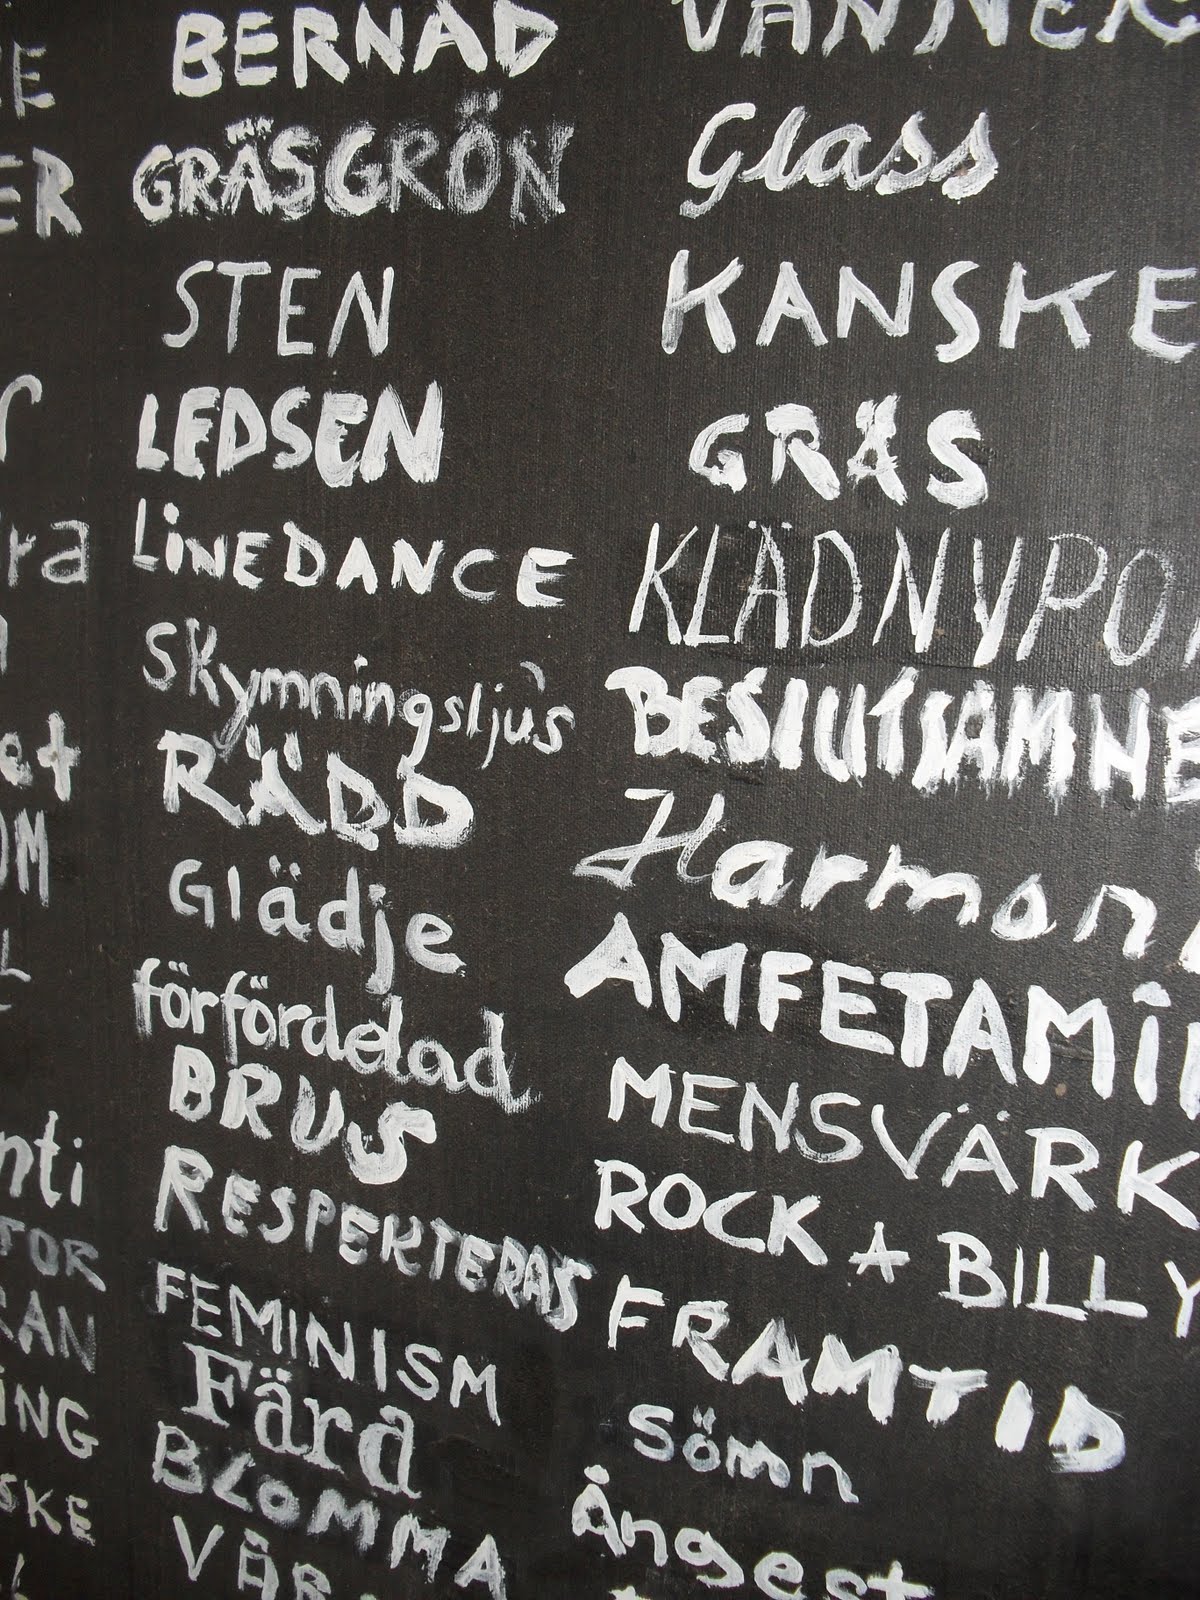 BERNAD
GRÄSGRÖN
STEN
LEDSEN
LiNEDANCE
Skymningsljus
RÄDD
Glädje
förfördelad
BRUS
RESPEKTERAS
FEMINISM
Fära
BLOMMA
VÅR
VÄNNER
Glass
KANSKE
GRÄS
KLÄDNYPO
BESlUTSAMNE
Harmon
AMFETAMiN
MENSVÄRK
ROCK A BILLY
FRAMTID
Sömn
Ångest
ER
ra
et
OM
L
nti
TOR
RAN
ING
SKE